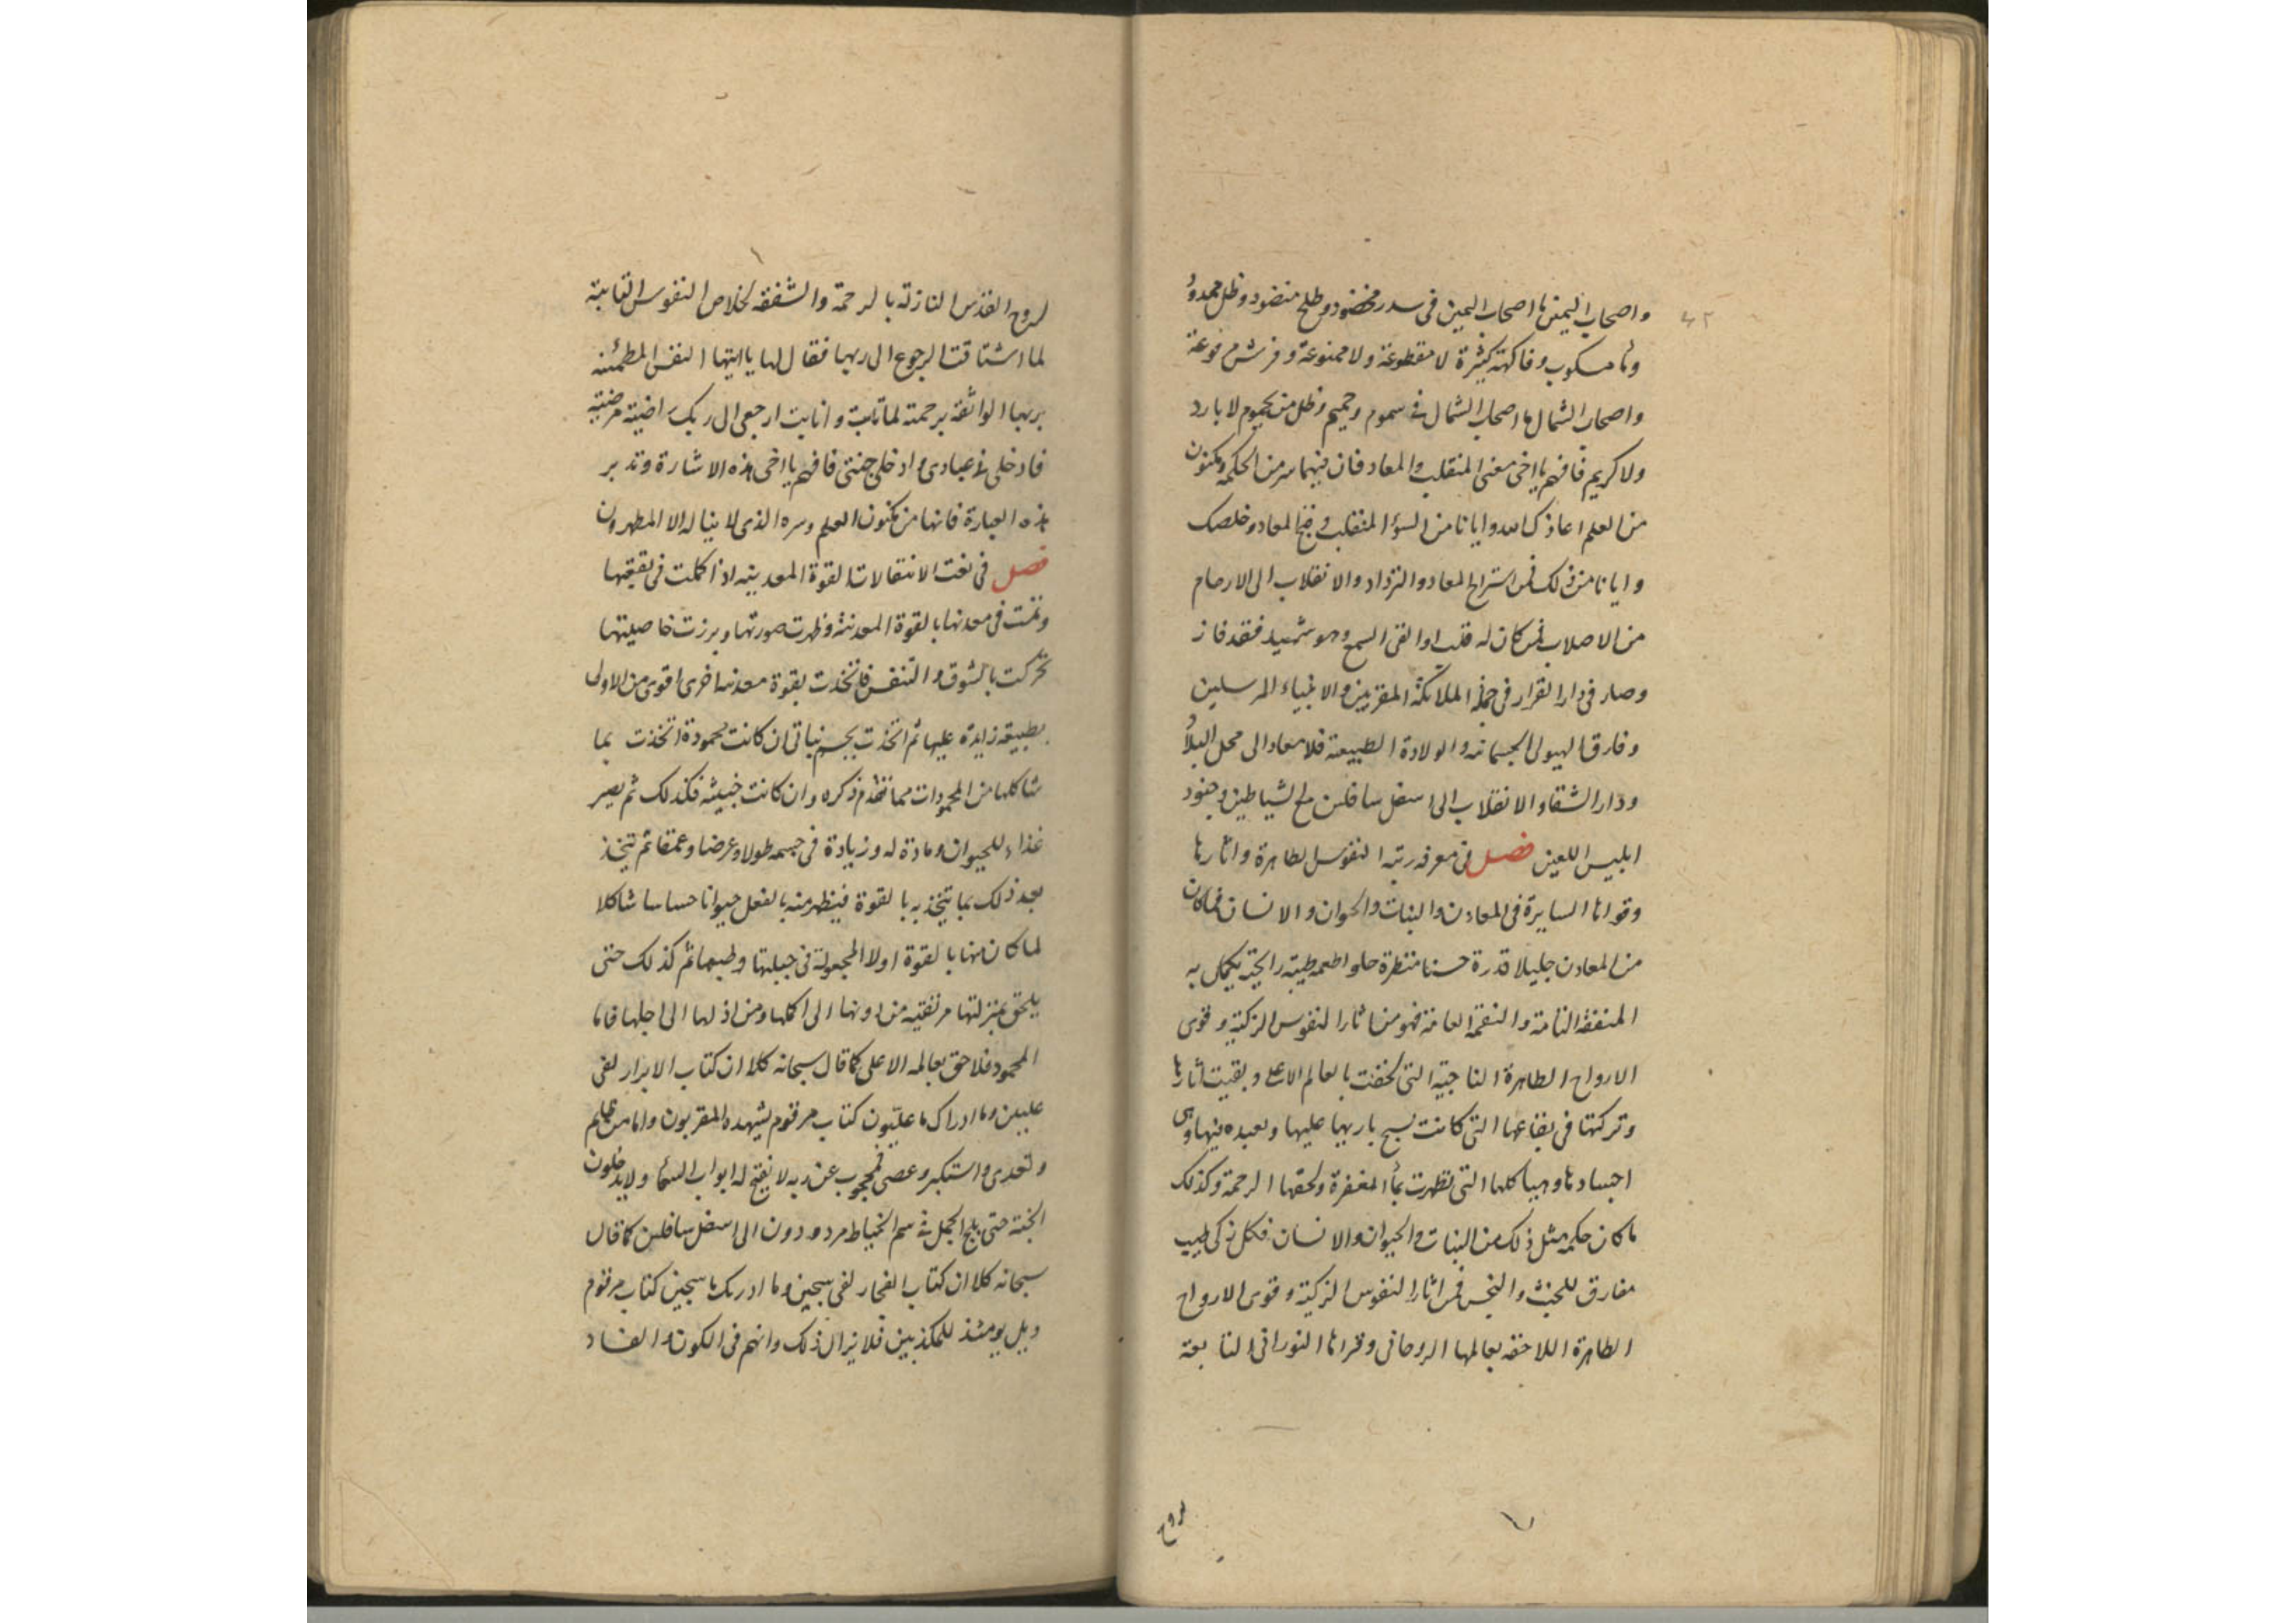 واصحاب اليمين ما اصحاب اليمين فى سدر مخضود وطلح منضود وظل ممدود
٤٢
وماء مسكوب وفاكهة كثيرة لا مقطوعة ولا ممنوعة وفرش مرفوعة
واصحاب الشمال ما اصحاب الشمال فى سموم وحميم وظل من يحموم لا بارد
ولا كريم فافهم يا اخى معنى المنقلب والمعاد فان فيهما سر من الحكمة ومكنون
من العلم اعاذك الله وايانا من السؤ المنقلب و قبح المعاد وخلصك
وايانا من ذلك فمن استراح المعاد والترداد والانقلاب الى الارحام
من الاصلاب فمن كان له قلب او القى السمع وهو شهيد فقد فاز
وصار فى دار القرار فى جملة الملائكة المقربين والانبياء المرسلين
وفارق الهيولى الجسمانية والولادة الطبيعية فلا معاد الى محل البلاء
ودار الشقاء والانقلاب الى اسفل سافلين مع الشياطين وجنود
ابليس اللعين فصل فى معرفة رتبة النفوس الطاهرة واثارها
وقواها السايرة فى المعادن والنبات والحيوان والانسان فما كان
من المعادن جليلا قدرة حسنا منظرة حلوا طعمه طيبة رايحته يكمل به
المنفعة التامة والنقمة العامة فهو من اثار النفوس الزكية وقوى
الارواح الطاهرة الناجية التى لحقت بالعالم الاعلى وبقيت اثارها
وتركتها فى بقاعها التى كانت تسبح باريها عليها وتعبده فيها وهى
اجسادها وهياكلها التى تطهرت بماء المغفرة ولحقها الرحمة وكذلك
ما كان حكمه مثل ذلك من النبات والحيوان والانسان فكل زكى طيب
مفارق للخبث والنجس فمن اثار النفوس الزكية وقوى الارواح
الطاهرة اللاحقة بعالمها الروحانى وقراها النورانى التابعة
لروح
لروح القدس النازلة بالرحمة والشفقة لخلاص النفوس التايبة
لما اشتاقت الرجوع الى ربها فقال لها يا ايتها النفس المطمئنه
بربها الواثقة برحمته لما تابت وانابت ارجعى الى ربك راضية مرضية
فادخلى فى عبادى وادخلى جنتى فافهم يا اخى هذه الاشارة وتدبر
هذه العبارة فانها من مكنون العلم وسره الذى لا يناله الا المطهرون
فصل فى نعت الانتقالات القوة المعدنية اذا كملت فى بقعتها
وتمت فى معدنها بالقوة المعدنية وظهرت صورتها وبرزت خاصيتها
تحركت بالشوق والتنفس فاتخذت بقوة معدنية اخرى اقوى من الاولى
بطبيعة زايدة عليها ثم اتخذت بجسم نباتى ان كانت محمودة اتخذت بما
شاكلها من المحمودات مما تقدم ذكره وان كانت خبيثة فكذلك ثم يصير
غذاء للحيوان ومادة له وزيادة فى جسمه طولا وعرضا وعمقا ثم تتخذ
بعد ذلك بما يتخذ به بالقوة فيظهر منه بالفعل حيوانا حساسا شاكلا
لما كان منها بالقوة اولا المجعولة فى جبلتها وطبعها ثم كذلك حتى
يلحق بمنزلتها مرتقية من ادونها الى اكملها ومن اذلها الى اجلها فاما
المحمود فلاحق بعالمه الاعلى كما قال سبحانه كلا ان كتاب الابرار لفى
عليين وما ادراك ما عليون كتاب مرقوم يشهده المقربون واما من ظلم
وتعدى واستكبر وعصى فمحجوب عن ربه لا تفتح له ابواب السماء ولا يدخلون
الجنة حتى يلج الجمل فى سم الخياط مردودون الى اسفل سافلين كما قال
سبحانه كلا ان كتاب الفجار لفى سجين وما ادريك ما سجين كتاب مرقوم
ويل يومئذ للمكذبين فلا يزال ذلك دانهم فى الكون والفساد